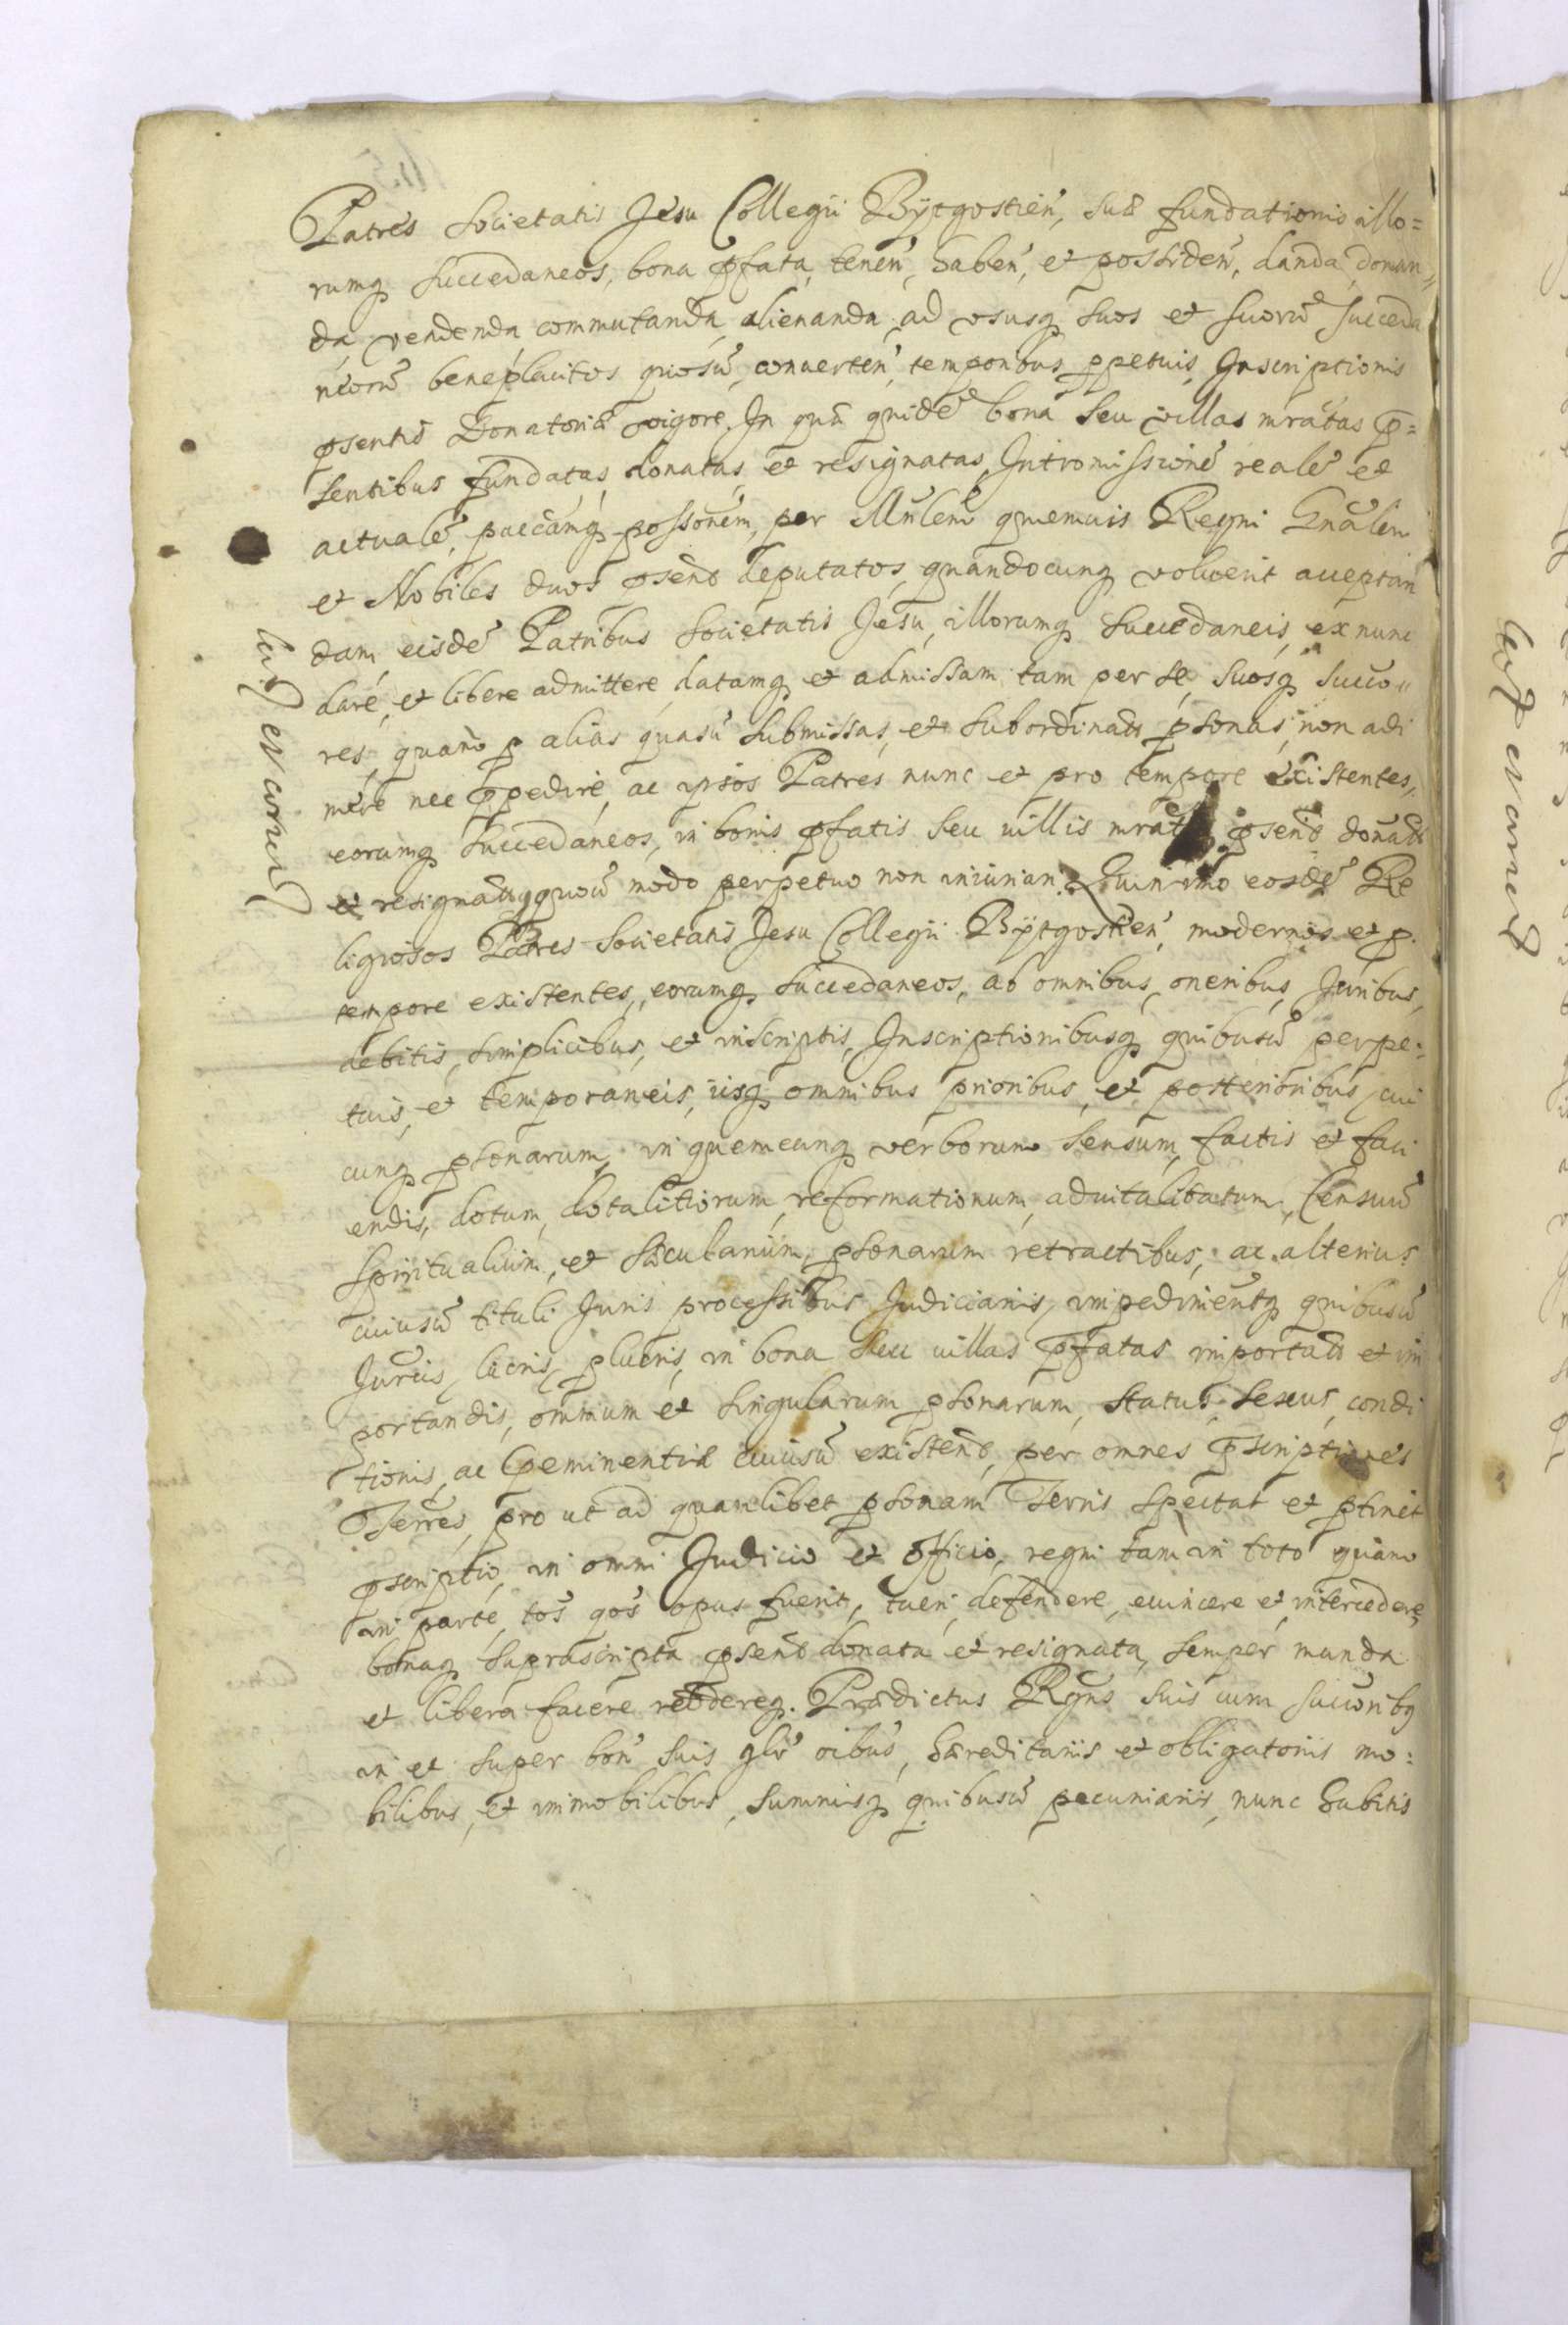 Patres Societatis Jesu Collegii Bÿtgostien̄, suæ fundationis illo=
rumq̨ succedaneos, bona p̄fata, tenen̄, haben̄, et possiden̄, danda, donan=
da, vendenda commutanda, alienanda, ad ususq̨ suos et suorū succeda
neorū beneplacitos quosū, conuerten̄, temporibus ꝑpetuis, Inscriptionis
p̄sentis Donatoriæ vigore. In quā quidē bona seu villas mratas p̄=
sentibus fundatas, donatas, et resignatas, Intromissionē realē et
actualē, pacēamq̨ possonem, per Mnlem quemuis Regni Gnalem
et Nobiles duos p̄send deputatos, quandocunq̨ voluerit acceptan
dam, eisdē Patribus Societatis Jesu, illorumq̨ succedaneis, ex nunc
dare, et libere admittere, datamq̨ et admissam tam per se, suosq̨ succo=
res, quam ꝑ alias quasū submissas, et subordinats ꝑsonas, non adi
mere nec p̄pedire, ac ipsos Patres nunc et pro tempore existentes,
eorumq̨ succedaneos, in bonis p̄fatis seu uillis mrats p̄send donats
et resignats quouū modo perpetuo non iniurian. Quinimo eosdē Re
ligiosos Patres Societatis Jesu Collegii Bÿtgostien̄, modernos et ꝑ
tempore existentes, eorumq̨ succedaneos, ab omnibus, oneribus, Juribus,
debitis, simplicibus, et inscriptis, Inscriptionibusq̨ quibusū perpe=
tuis, et temporaneis, iisq̨ omnibus prioribus, et posterioribus, cui
cunq̨ ꝑsonarum, in quemcunq̨ verborum sensum, factis et faci
endis, dotum, dotalitiorum, reformationum, aduitalitatum, Censuū
spiritualium, et sæcularium, ꝑsonarum retractibus, ac alterius
cuiusū tituli Juris processibus Judiciariis, impedimentq̨ quibusū
Jureis, lucris, ꝑlucris, in bona seu uillas p̄fatas importats et im
portandis, omnium et singularum ꝑsonarum, status, sexus, condi
tionis, ac Præeminentiæ cuiusū existend, per omnes p̄scriptiones
Terres, pro ut ad quamlibet ꝑsonam Terris spectat et ꝑtinet
p̄scriptio, in omni Judicio et Officio, regni tam in toto quam
in parte, tos qos opus fuerit, tueri, defendere, euincere et intercedere,
bonaq̨ suprascripta p̄send donata et resignata, semper munda
et libera facere reddereq̨. Prædictus Rgns suis cum succoribq̨
in et super bon̄ suis glr̄ oibus, hæreditariis et obligatoriis mo=
bilibus, et immobilibus, summisq̨ quibusū pecuniariis, nunc habitis